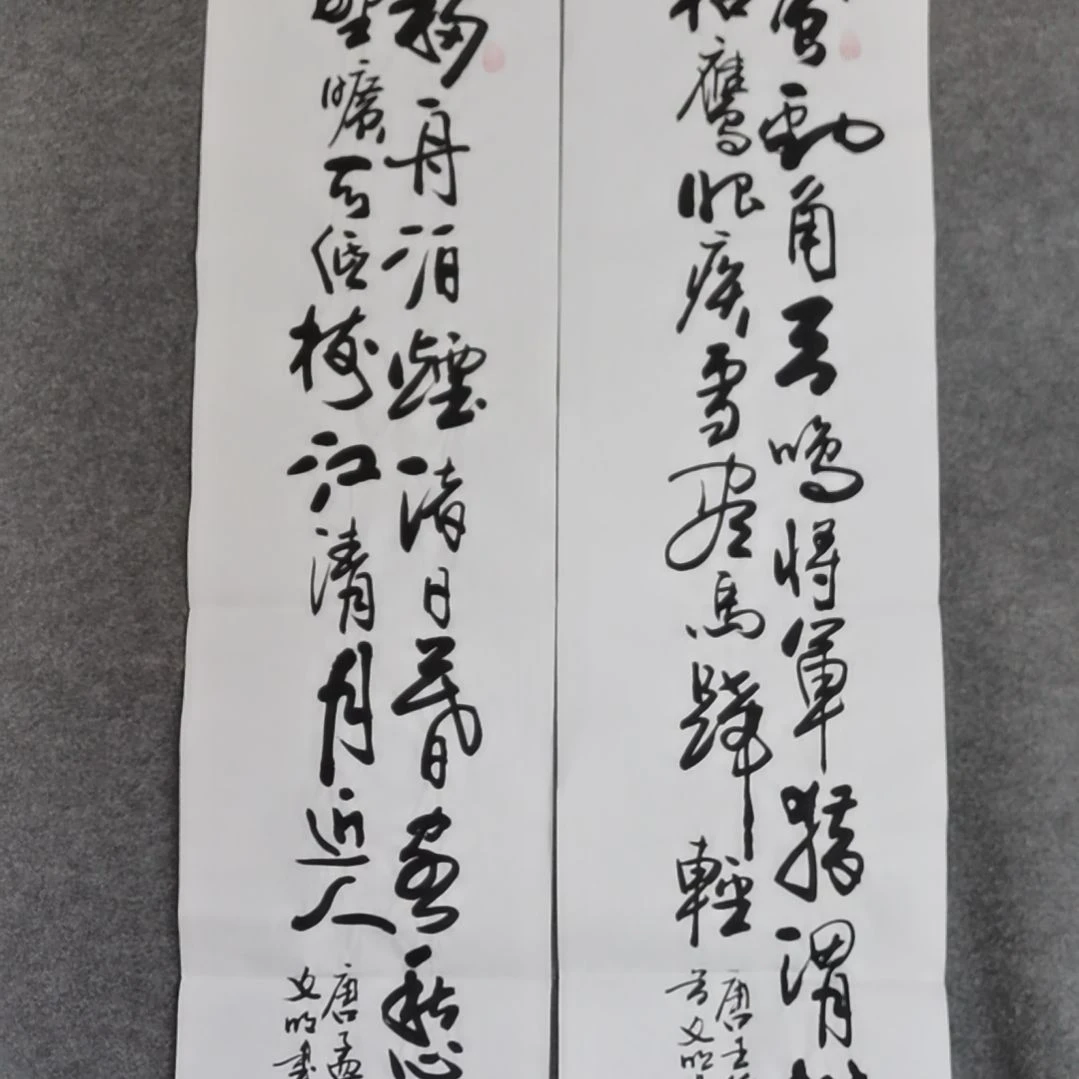 風勁角弓鳴將軍猎渭
枯鷹眼疾雪盡馬蹄輕
唐王
首文明
移舟泊煙渚日暮客愁
野曠天低樹江清月近人
唐孟
文明書